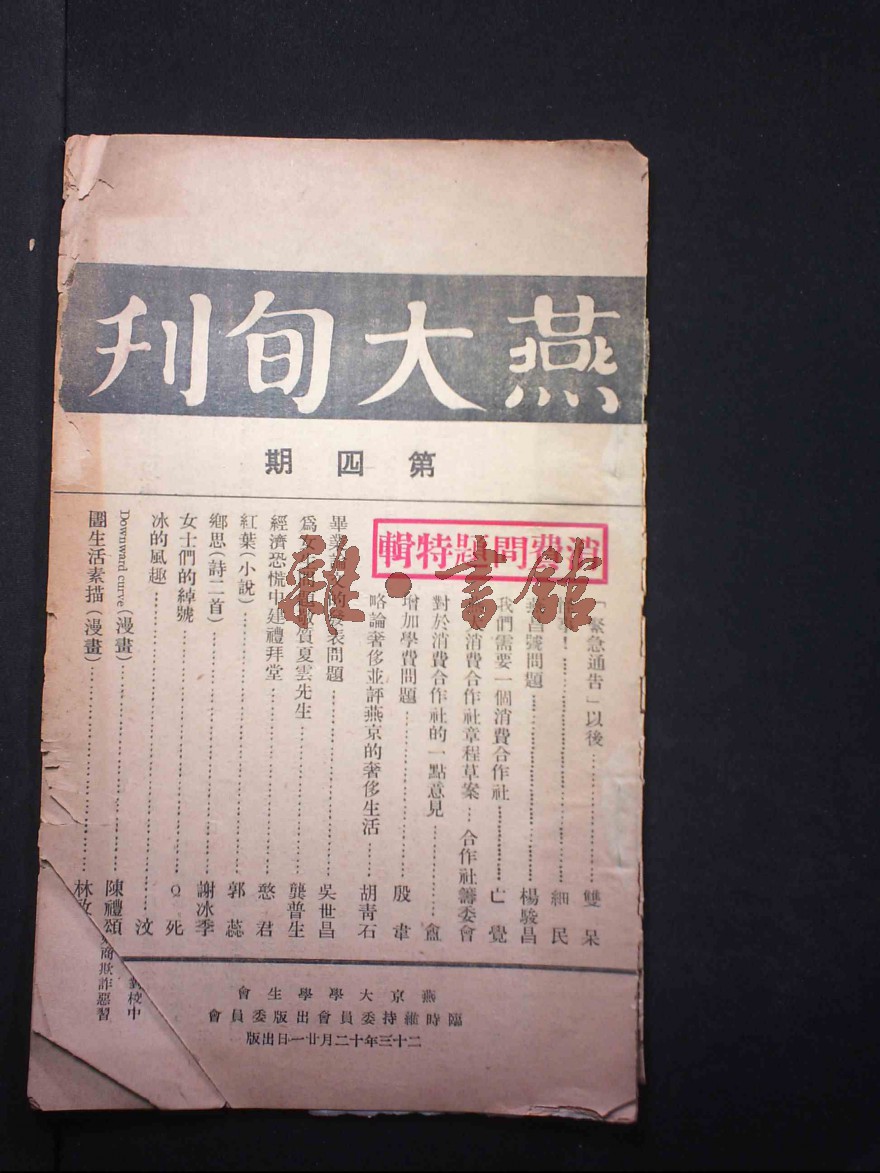 燕大旬刊
第四期
消費問題特輯
「緊急通告」以後……雙呆
……細民
昌號問題……楊駿昌
我們需要一個消費合作社……亡覺
消費合作社章程草案……合作社籌委會
對於消費合作社的一點意見……盦
增加學費問題……殷韋
略論奢侈並評燕京的奢侈生活……胡青石
畢業論文的發表問題……吳世昌
質夏雲先生……龔普生
經濟恐慌中建禮拜堂……憨君
紅葉(小說)……郭蕊
鄉思(詩二首)……謝冰季
女士們的綽號……Ω死
冰的風趣……汶
Downward curve(漫畫)……陳禮頌
團生活素描(漫畫)……林
商欺詐惡習
校中
燕京大學學生會
臨時維持委員會出版委員會
二十三年十二月廿一日出版
雜·書館